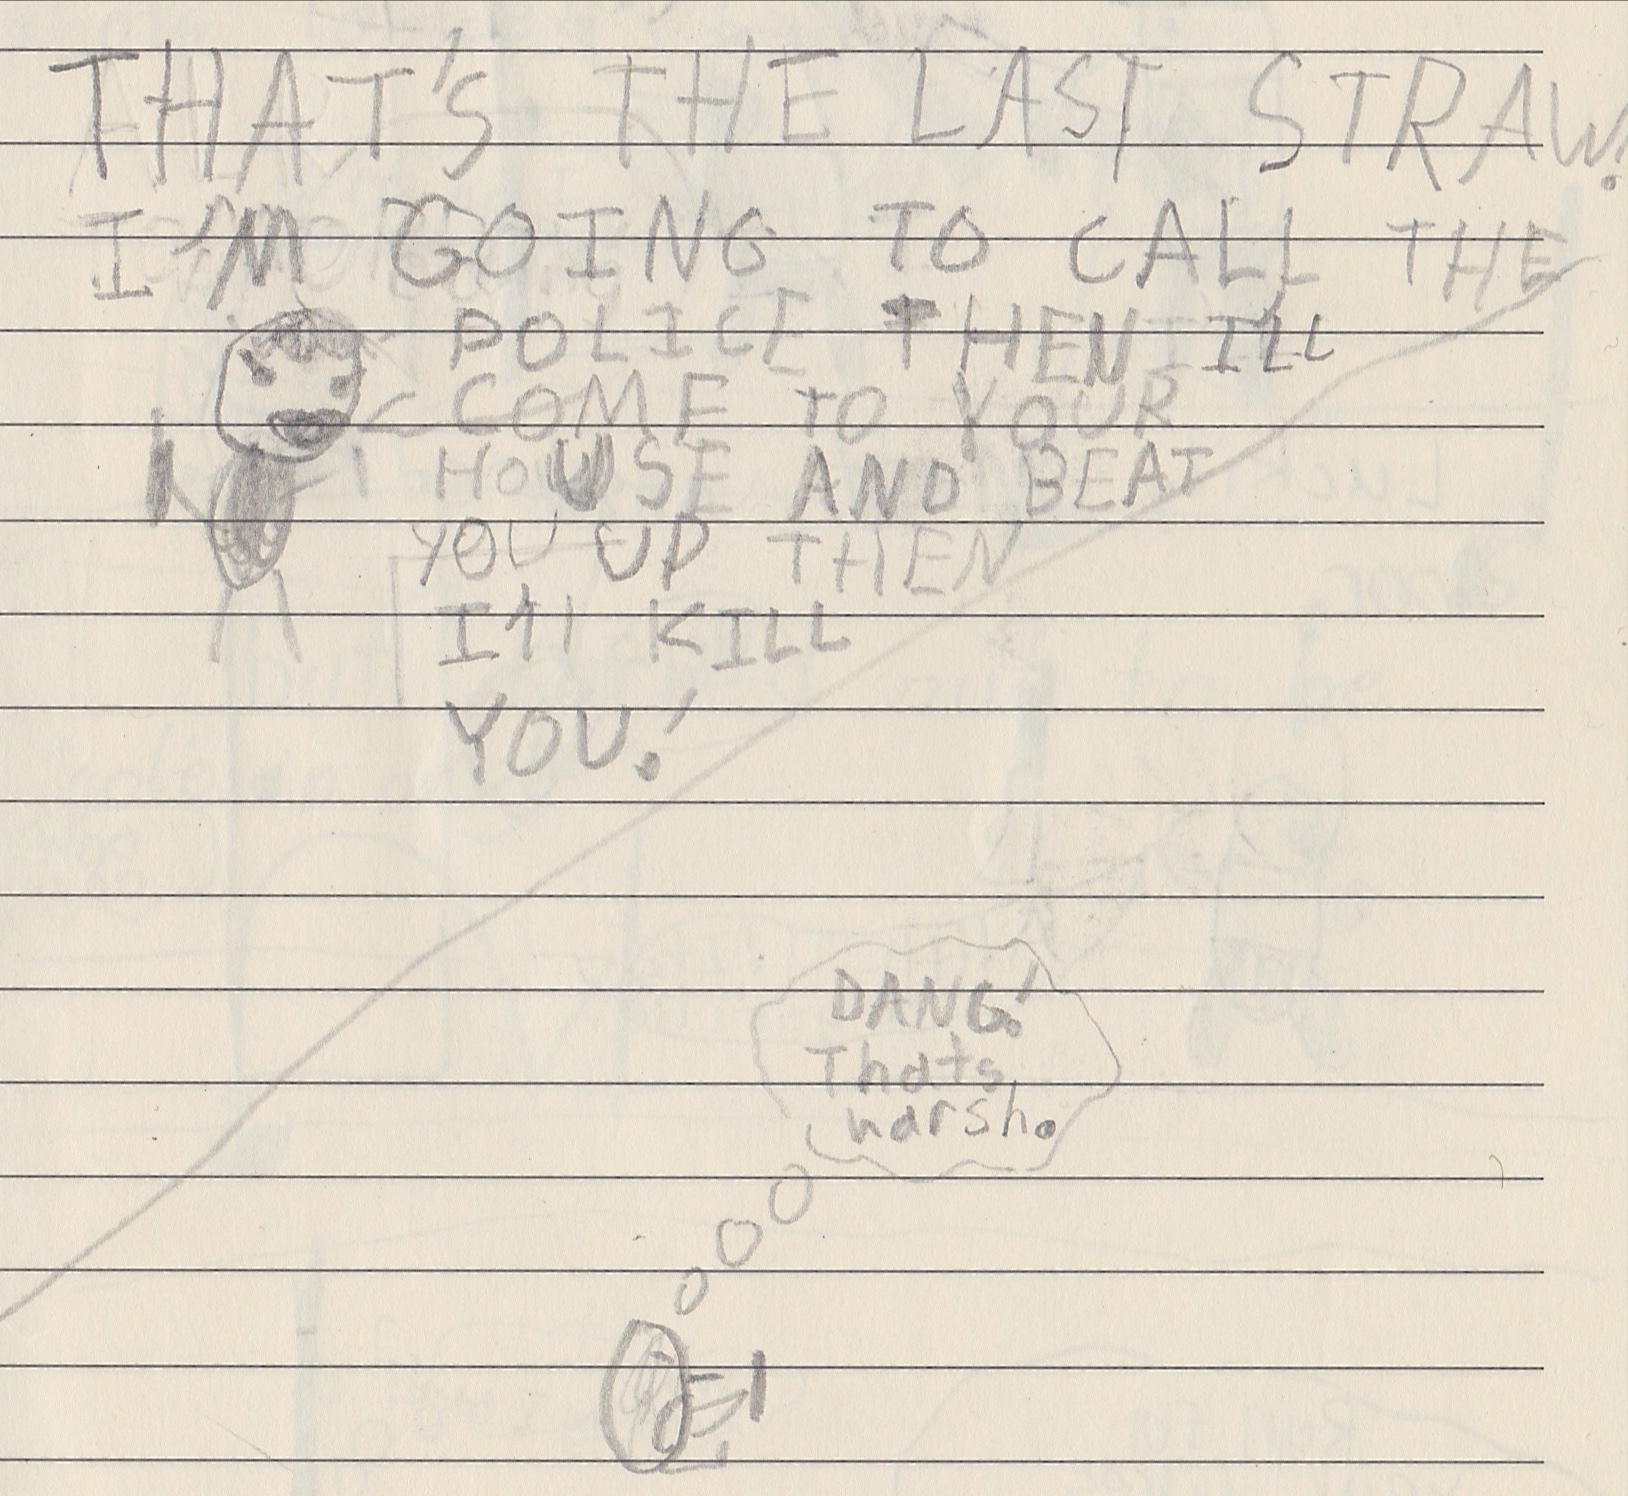 THAT'S THE LAST STRAW!
I'M GOING TO CALL THE
POLICE THEN ILL
COME TO YOUR
HOUSE AND BEAT
YOU UP THEN
I'll KILL
YOU!
DANG!
Thats
harsh.